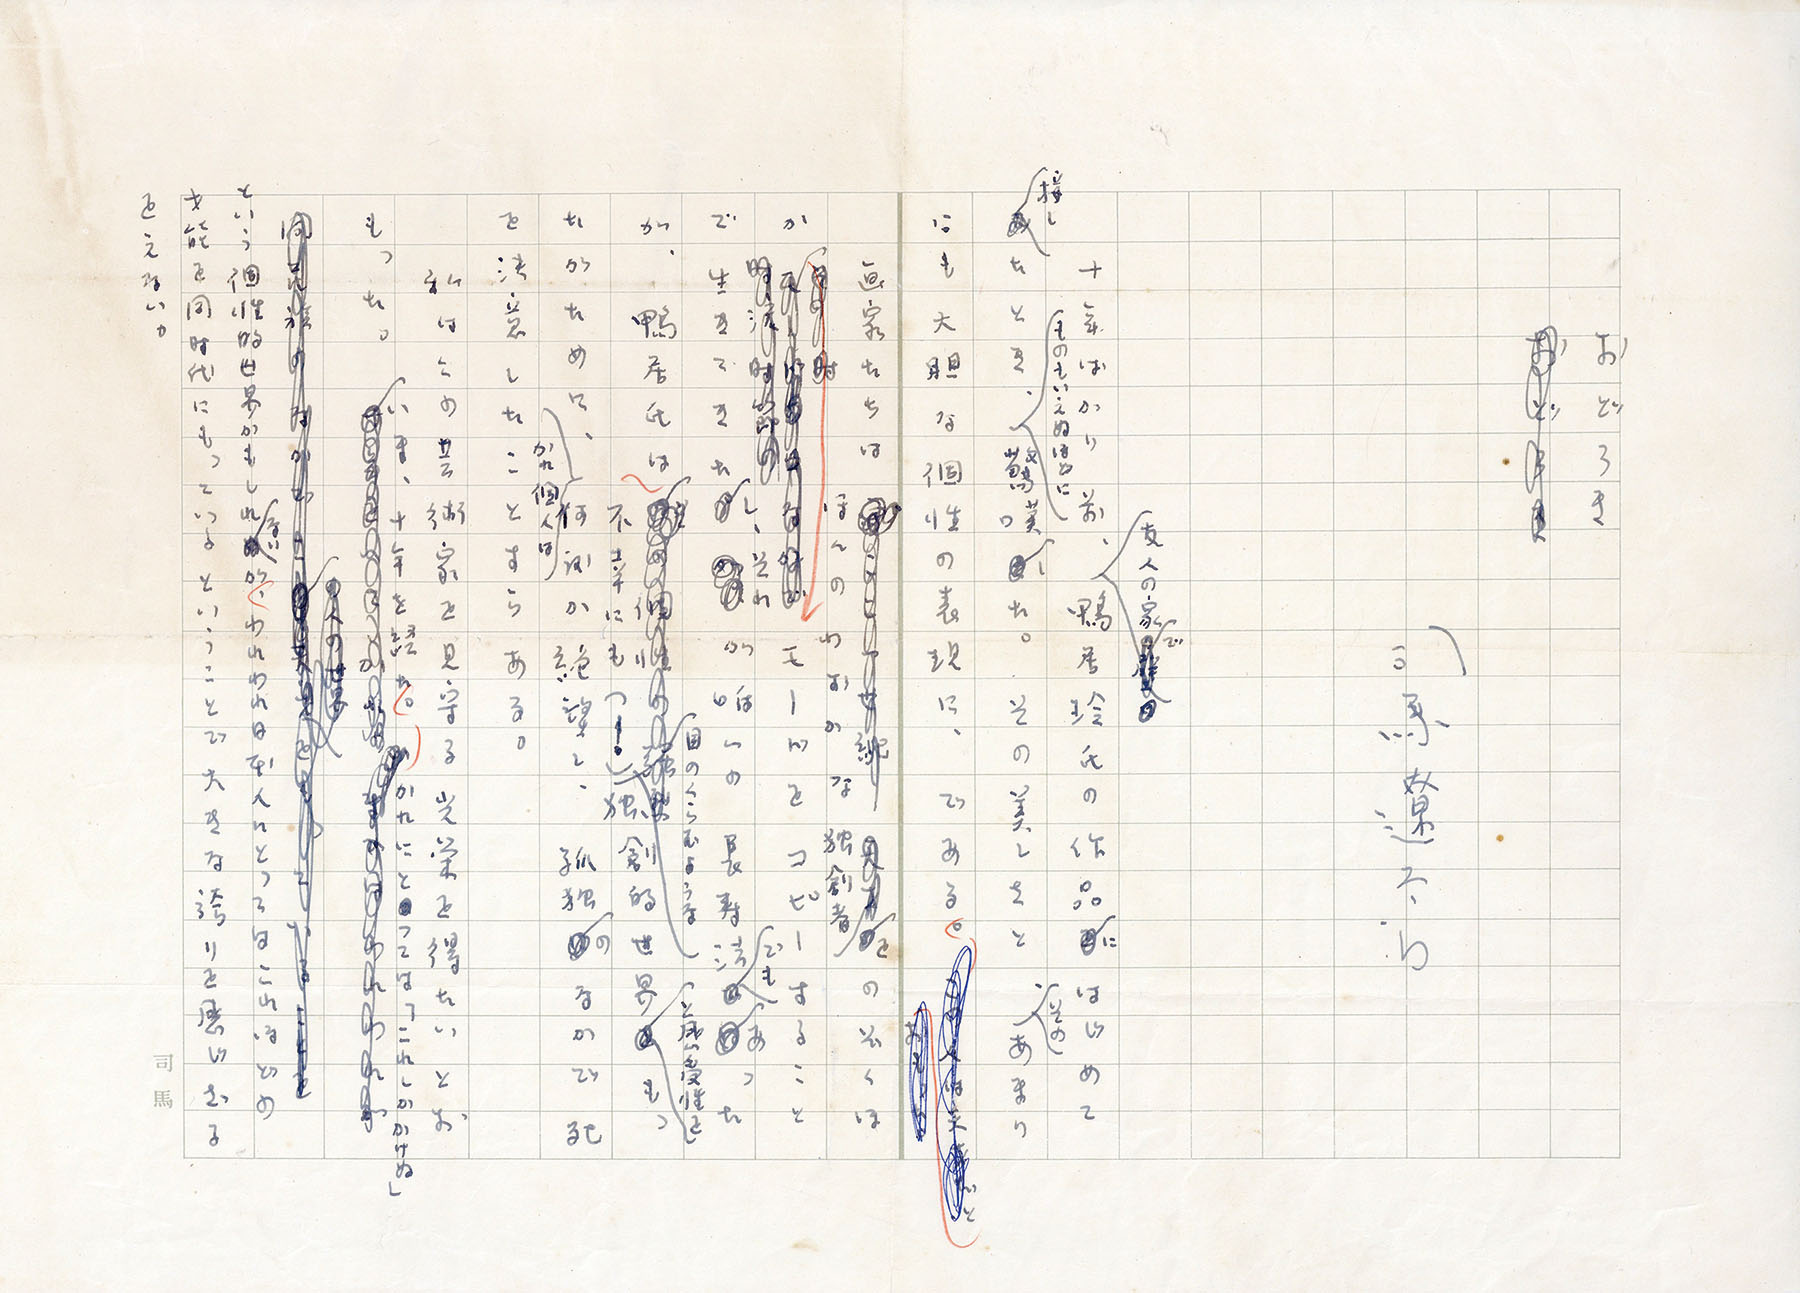 おどろき
司馬遼太郎
友人の家で
十年ばかり前、鴨居玲氏の作品にはじめて
接し
ものもいえぬほどに
、その
たとき、驚嘆した。その美しさと あまり
にも大胆な個性の表現に、である。
画家たちは ほんのわずかな独創者をのぞくほ
か モードをコピーすること
でも
で生きてきたし、それが唯一の長寿法 あった
目のくらむような
と感受性を
が、鴨居氏は 不幸にも(!)独創的世界 もっ
かれ個人は
たがために、何度か絶望し、孤独のなかで死
を決意したことすらある。
私はこの芸術家を見守る光栄を得たいとお
もった。いま、十年を経た。かれにとっては「これしかかけぬ」
という個性的世界かもしれないが、われわれ日本人にとってはこれほどの
才能を同時代にもっているということで大きな誇りを感じざる
をえない。
司馬